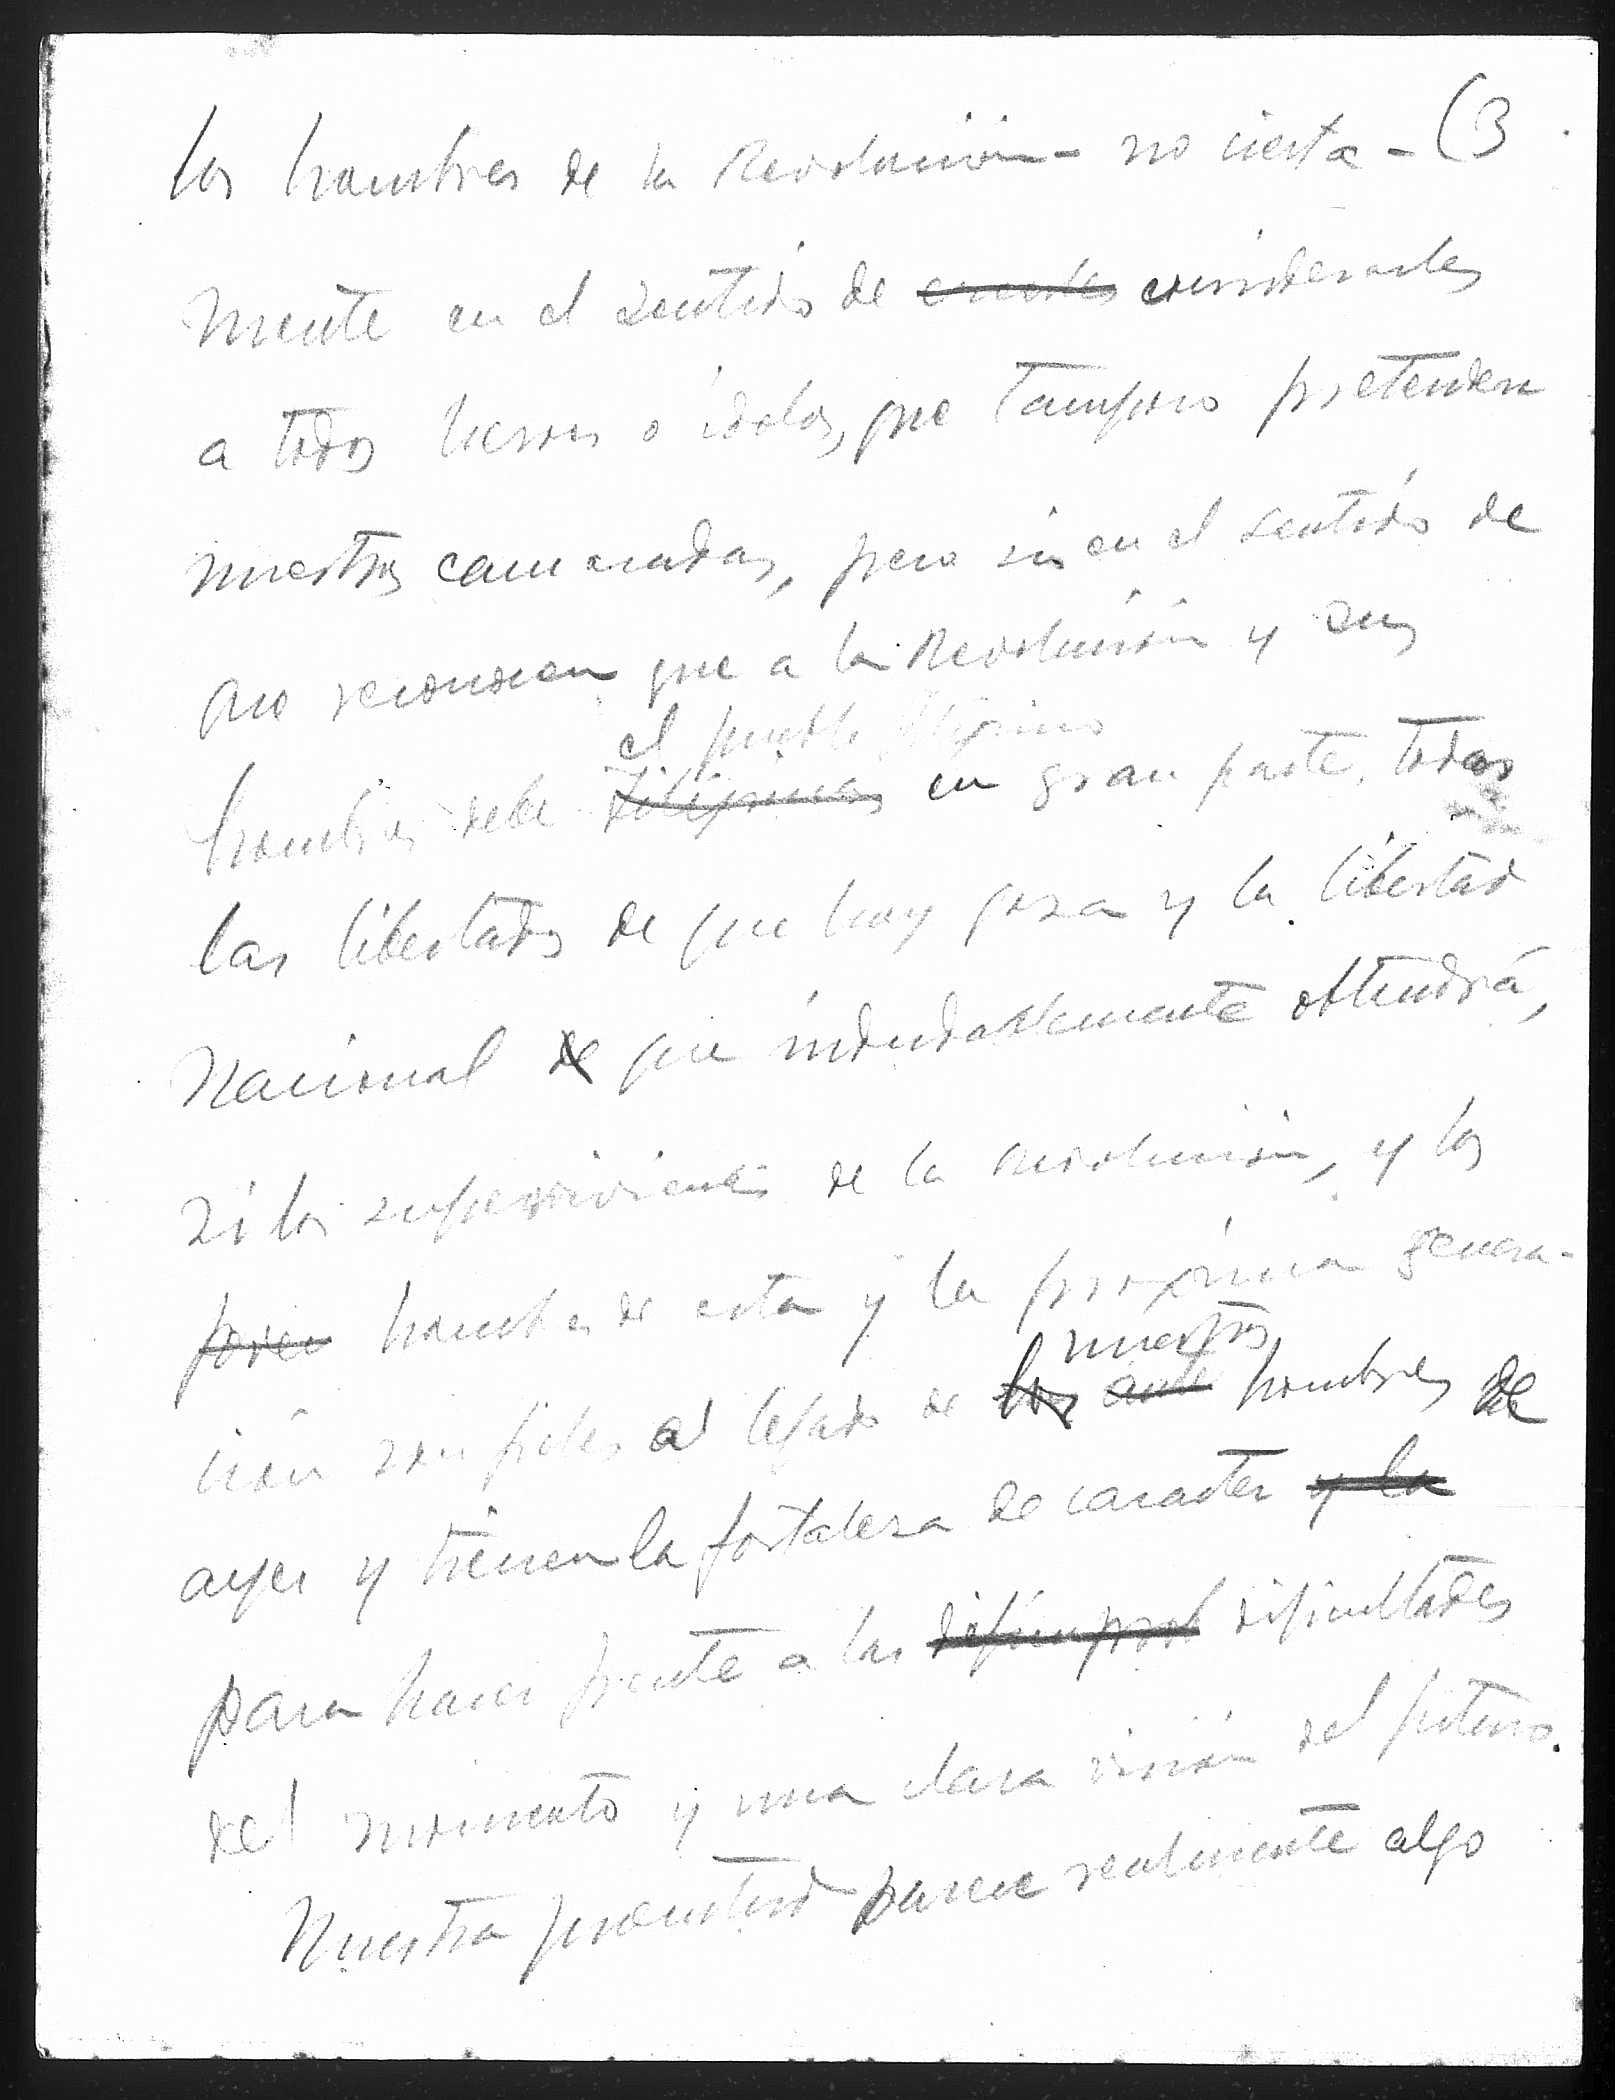 los hombres de la Revolución - no cierta - (3
mente en el sentido de considerarles
a todos heroes o ídolos, que tampoco pretenden
nuestros camaradas, pero si en el sentido de
que a la Revolución y sus
el pueblo filipino
hombres debe Filipinas en gran parte, todas
las libertades de que hoy goza y la libertad
Nacional de que indudablemente obtendrá,
si los supervivientes de la revolución, y los
joven hombres de esta y la próxima genera-
nuestros
ción son fieles al legado de los ante hombres de
ayer y tienen la fortaleza de caracter y la
para hacer frente a las dificultades
del momento y una clara visión del futuro.
Nuestra juventud parece realmente algo